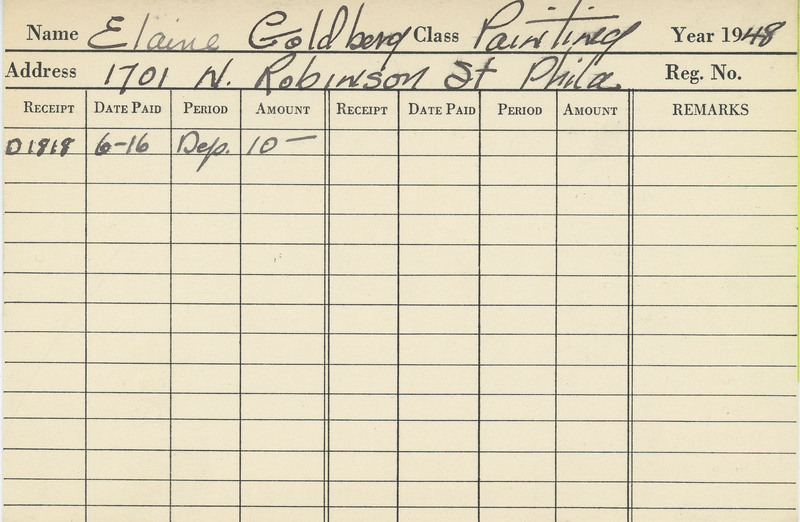 Name Elaine Goldberg Class Painting Year 1948
Address 1701 N. Robinson St Phila Reg. No.
RECEIPT DATE PAID PERIOD AMOUNT RECEIPT DATE PAID PERIOD AMOUNT REMARKS
D1818 6-16 Dep. 10 —